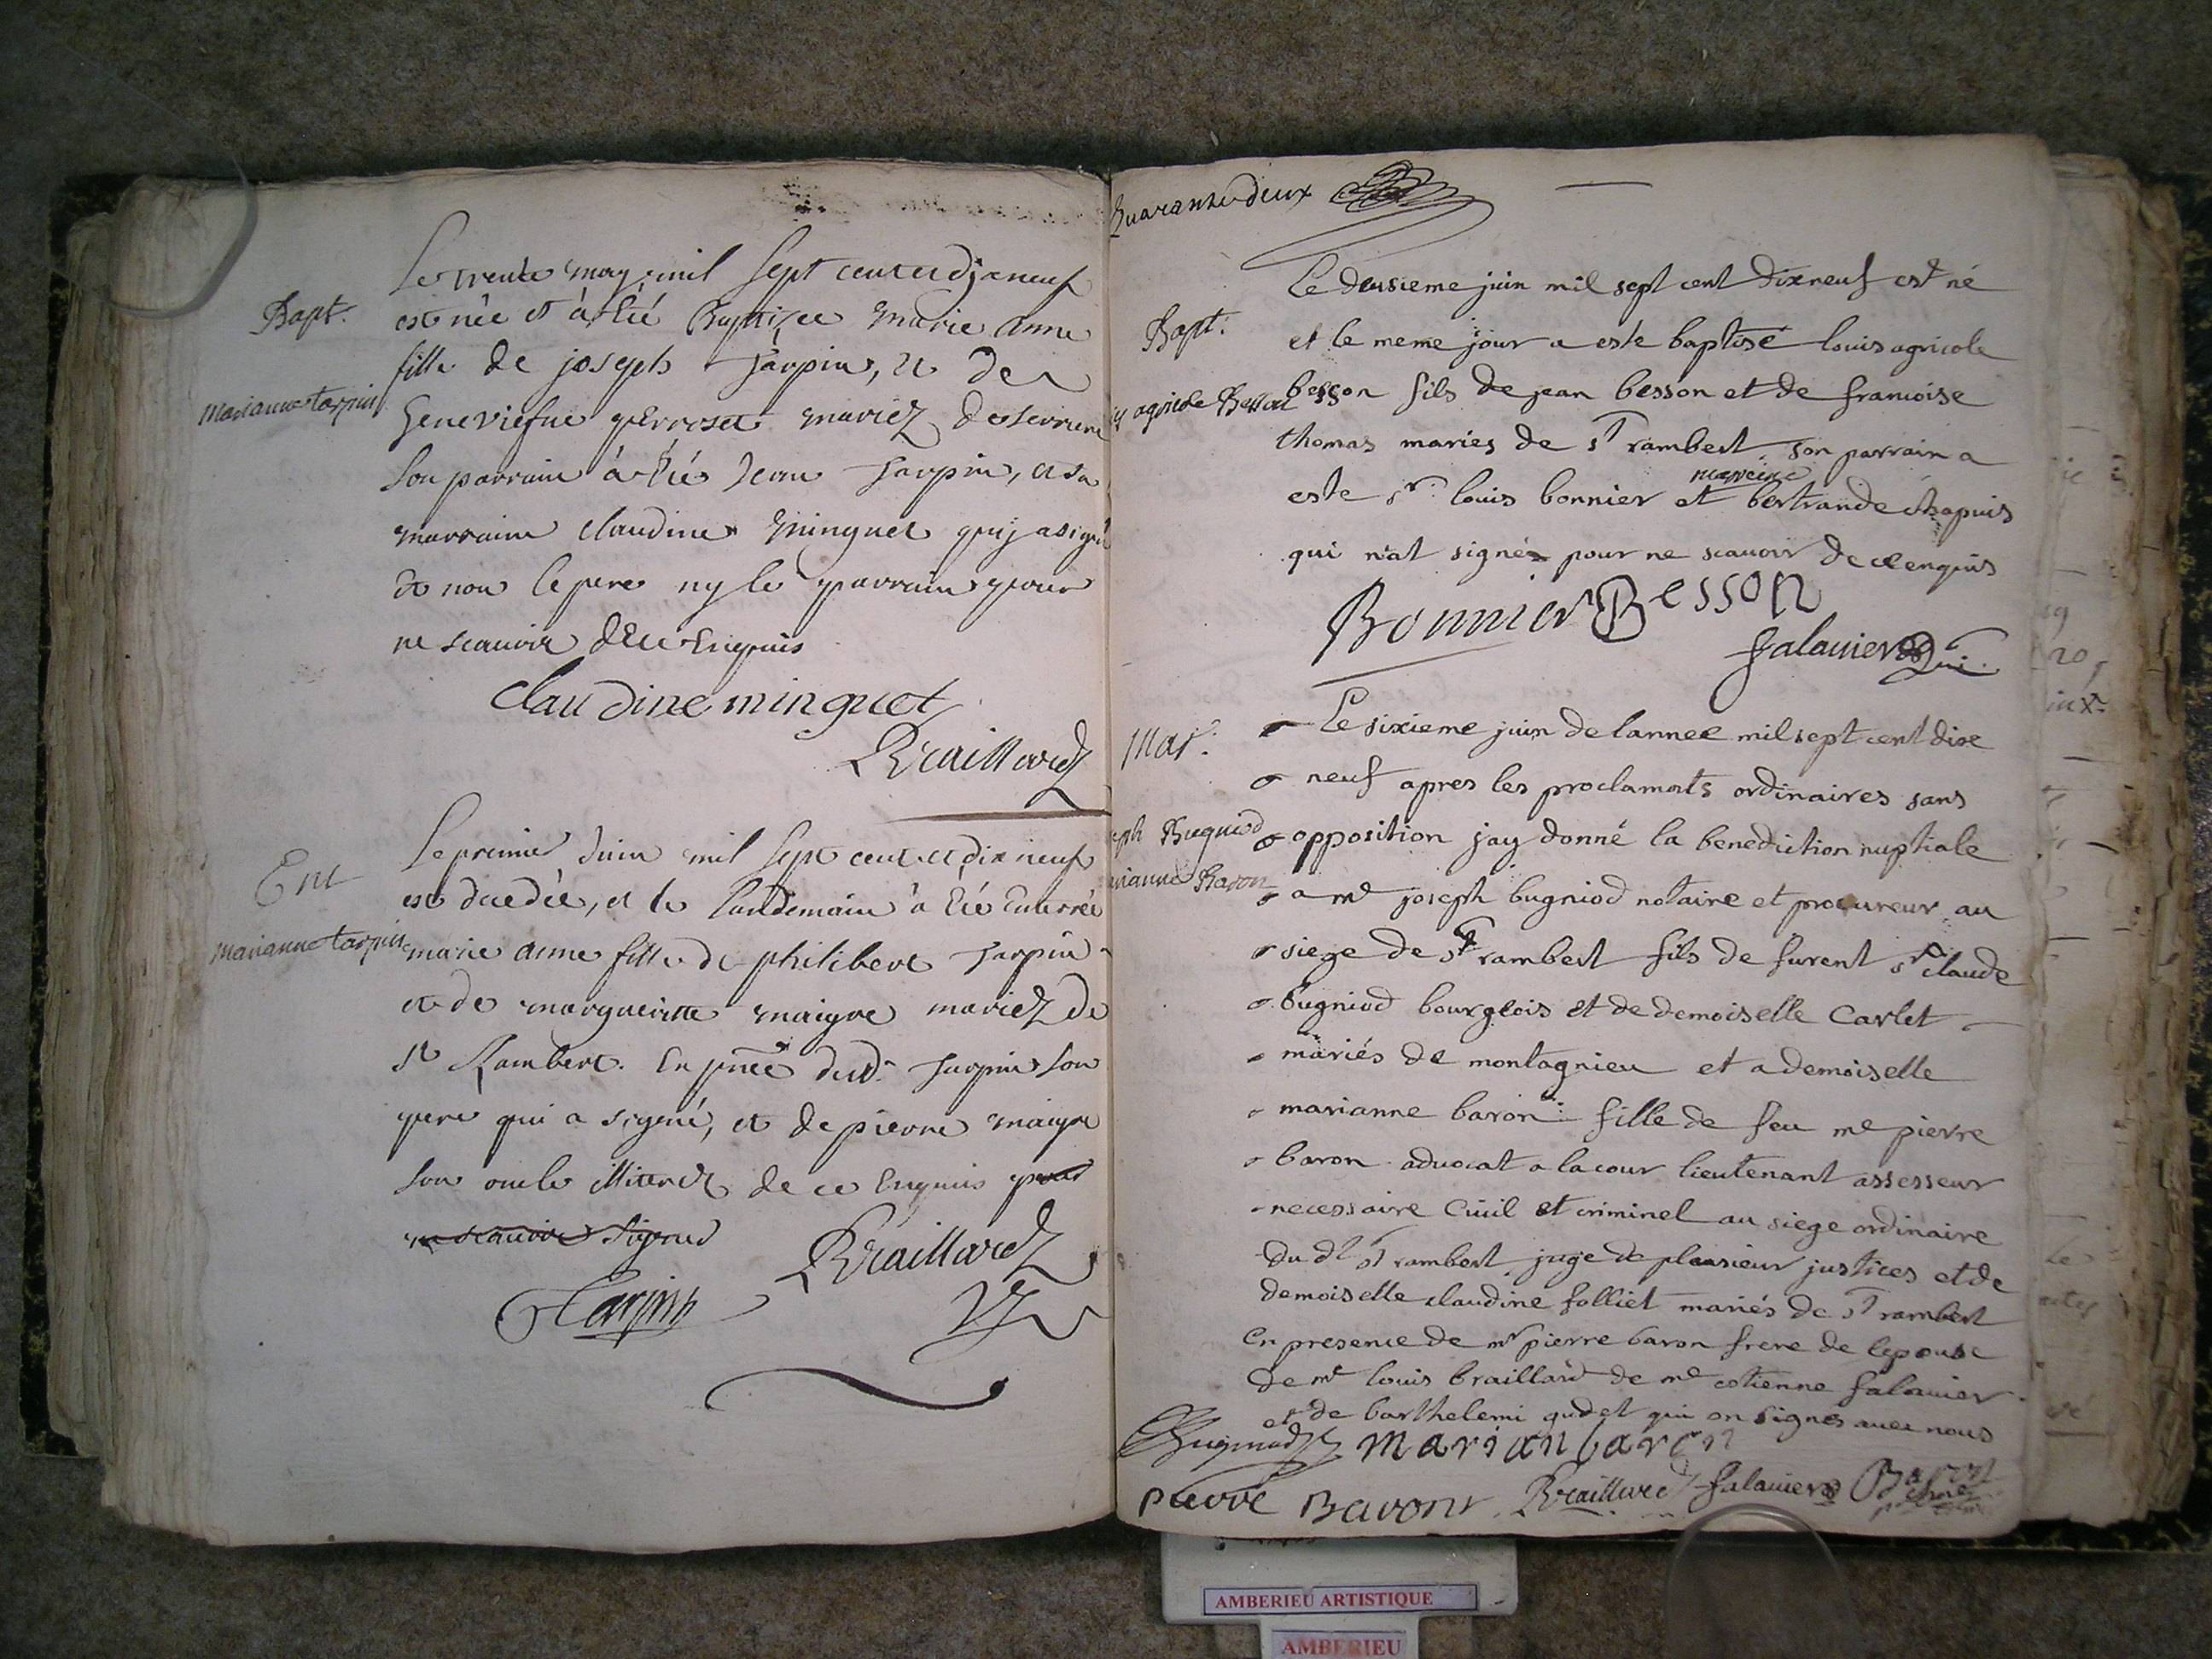 Bapt.
Marianne tarpin
Le trente may mil sept cent et dixneuf
est née et à été Baptizée Marie Anne
fille de joseph Tarpin, et de
Geneviefve perroset mariez de serriere
son parrain à été Jean Tarpin, et sa
marraine claudine Minguet qui j a signé
et non le pere ny le parrain pour
ne scauoir de ce Enquis
Claudine minguet
Braillard
Ent
Marianne tarpin
Le premier Juin mil sept cent et dix neuf
est decedée, et le landemain à été Enterrée
marie Anne fille de philibert Tarpin
et de margueritte maigre mariez de
St Rambert. En pnce dud. Tarpin son
pere qui a signé, et de pierre maigre
son oncle illiteré de ce Enquis pour
ne scauoir signer
Braillard
Tarpin
Quarante deux
Bapt.
agricole Besson
Le deusieme juin mil sept cent dixneuf est né
et le meme jour a este baptisé louis agricole
besson fils de jean besson et de francoise
thomas mariés de st rambert son parrain a
este sr. louis bonnier et marreine bertrande chapuis
qui n'at signé pour ne scauoir de ce enquis
Bonnier Besson
falauier
Mar.
eph Bugniod
arianne Baron
Le sixieme juin de lannee mil sept cent dixe
neuf apres les proclamats ordinaires sans
opposition jay donné la benediction nuptiale
a me joseph bugniod notaire et procureur au
siege de st rambert fils de furent sr claude
bugniod bourgeois et de demoiselle Carlet
mariés de montagnieu et a demoiselle
marianne baron fille de feu me pierre
baron aduocat a la cour lieutenant assesseur
necessaire Ciuil et criminel au siege ordinaire
du dt st rambert juge de plusieur justices et de
demoiselle claudine folliet mariés de st rambert
en presence de mr pierre baron frere de lepouse
de me louis braillard de me estienne falauier
et de barthelemi gudet qui on signés auec nous
Bugniod marian baron
pierre Baront Braillard falauier
AMBERIEU ARTISTIQUE
AMBERIEU